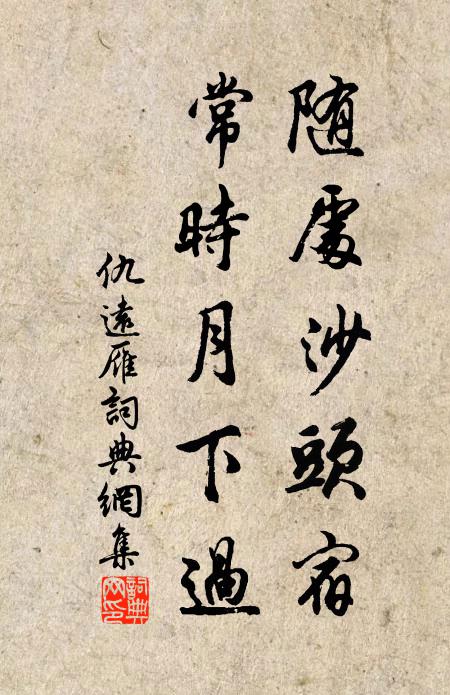 随處沙頭宿
常時月下過
仇遠雁詞典網集
詞典網印